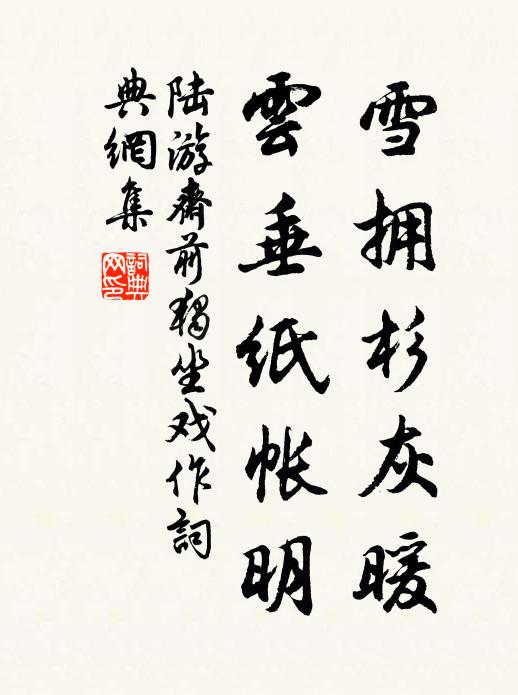 雪拥杉灰暖
雲垂纸帐明
陆游斋前独坐戏作詞
典網集
詞典
网印